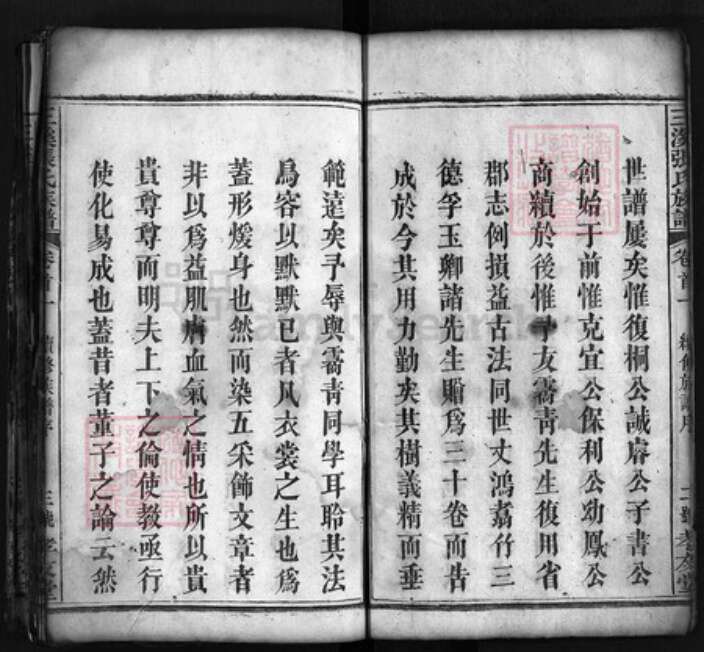 三溪張氏族譜 卷首一 續修族譜序 二 孝友堂
世譜屢矣惟復桐公誠齋公子書公
創始于前惟克宜公保利公幼鳳公
商續於後惟予友霱青先生復用省
郡志例損益古法同世丈鴻嘉竹三
德孚玉卿諸先生贈為三十卷而告
成於今其用力勤矣其樹義精而垂
範遠矣予辱與霱青同學耳聆其法
為容以默默已者凡衣裳之生也為
蓋形煖身也然而染五采飾文章者
非以為益肌膚血氣之情也所以貴
貴尊尊而明夫上下之倫使教亟行
使化易成也蓋昔者董子之論云然
三溪張氏族譜 卷首一 續修族譜序 三 孝友堂